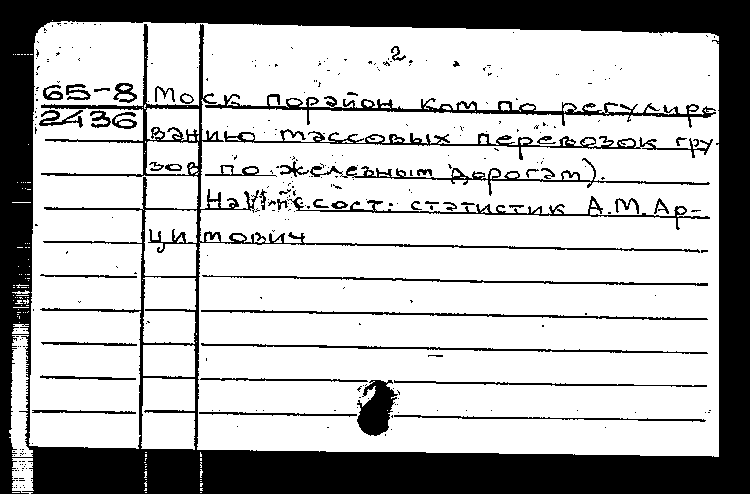 2.
65-8 Моск. порайон. ком. по регулиро
2436
ванию массовых перевозок гру-
зов по железным дорогам).
На VI с. сост.: статистик А.М. Ар-
цимович